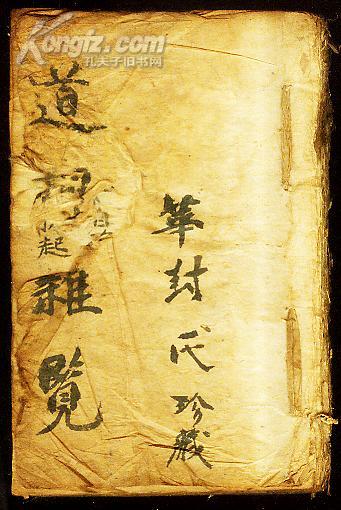 Kongfz.com
孔夫子旧书网
華封氏珍藏
道雜覽
起